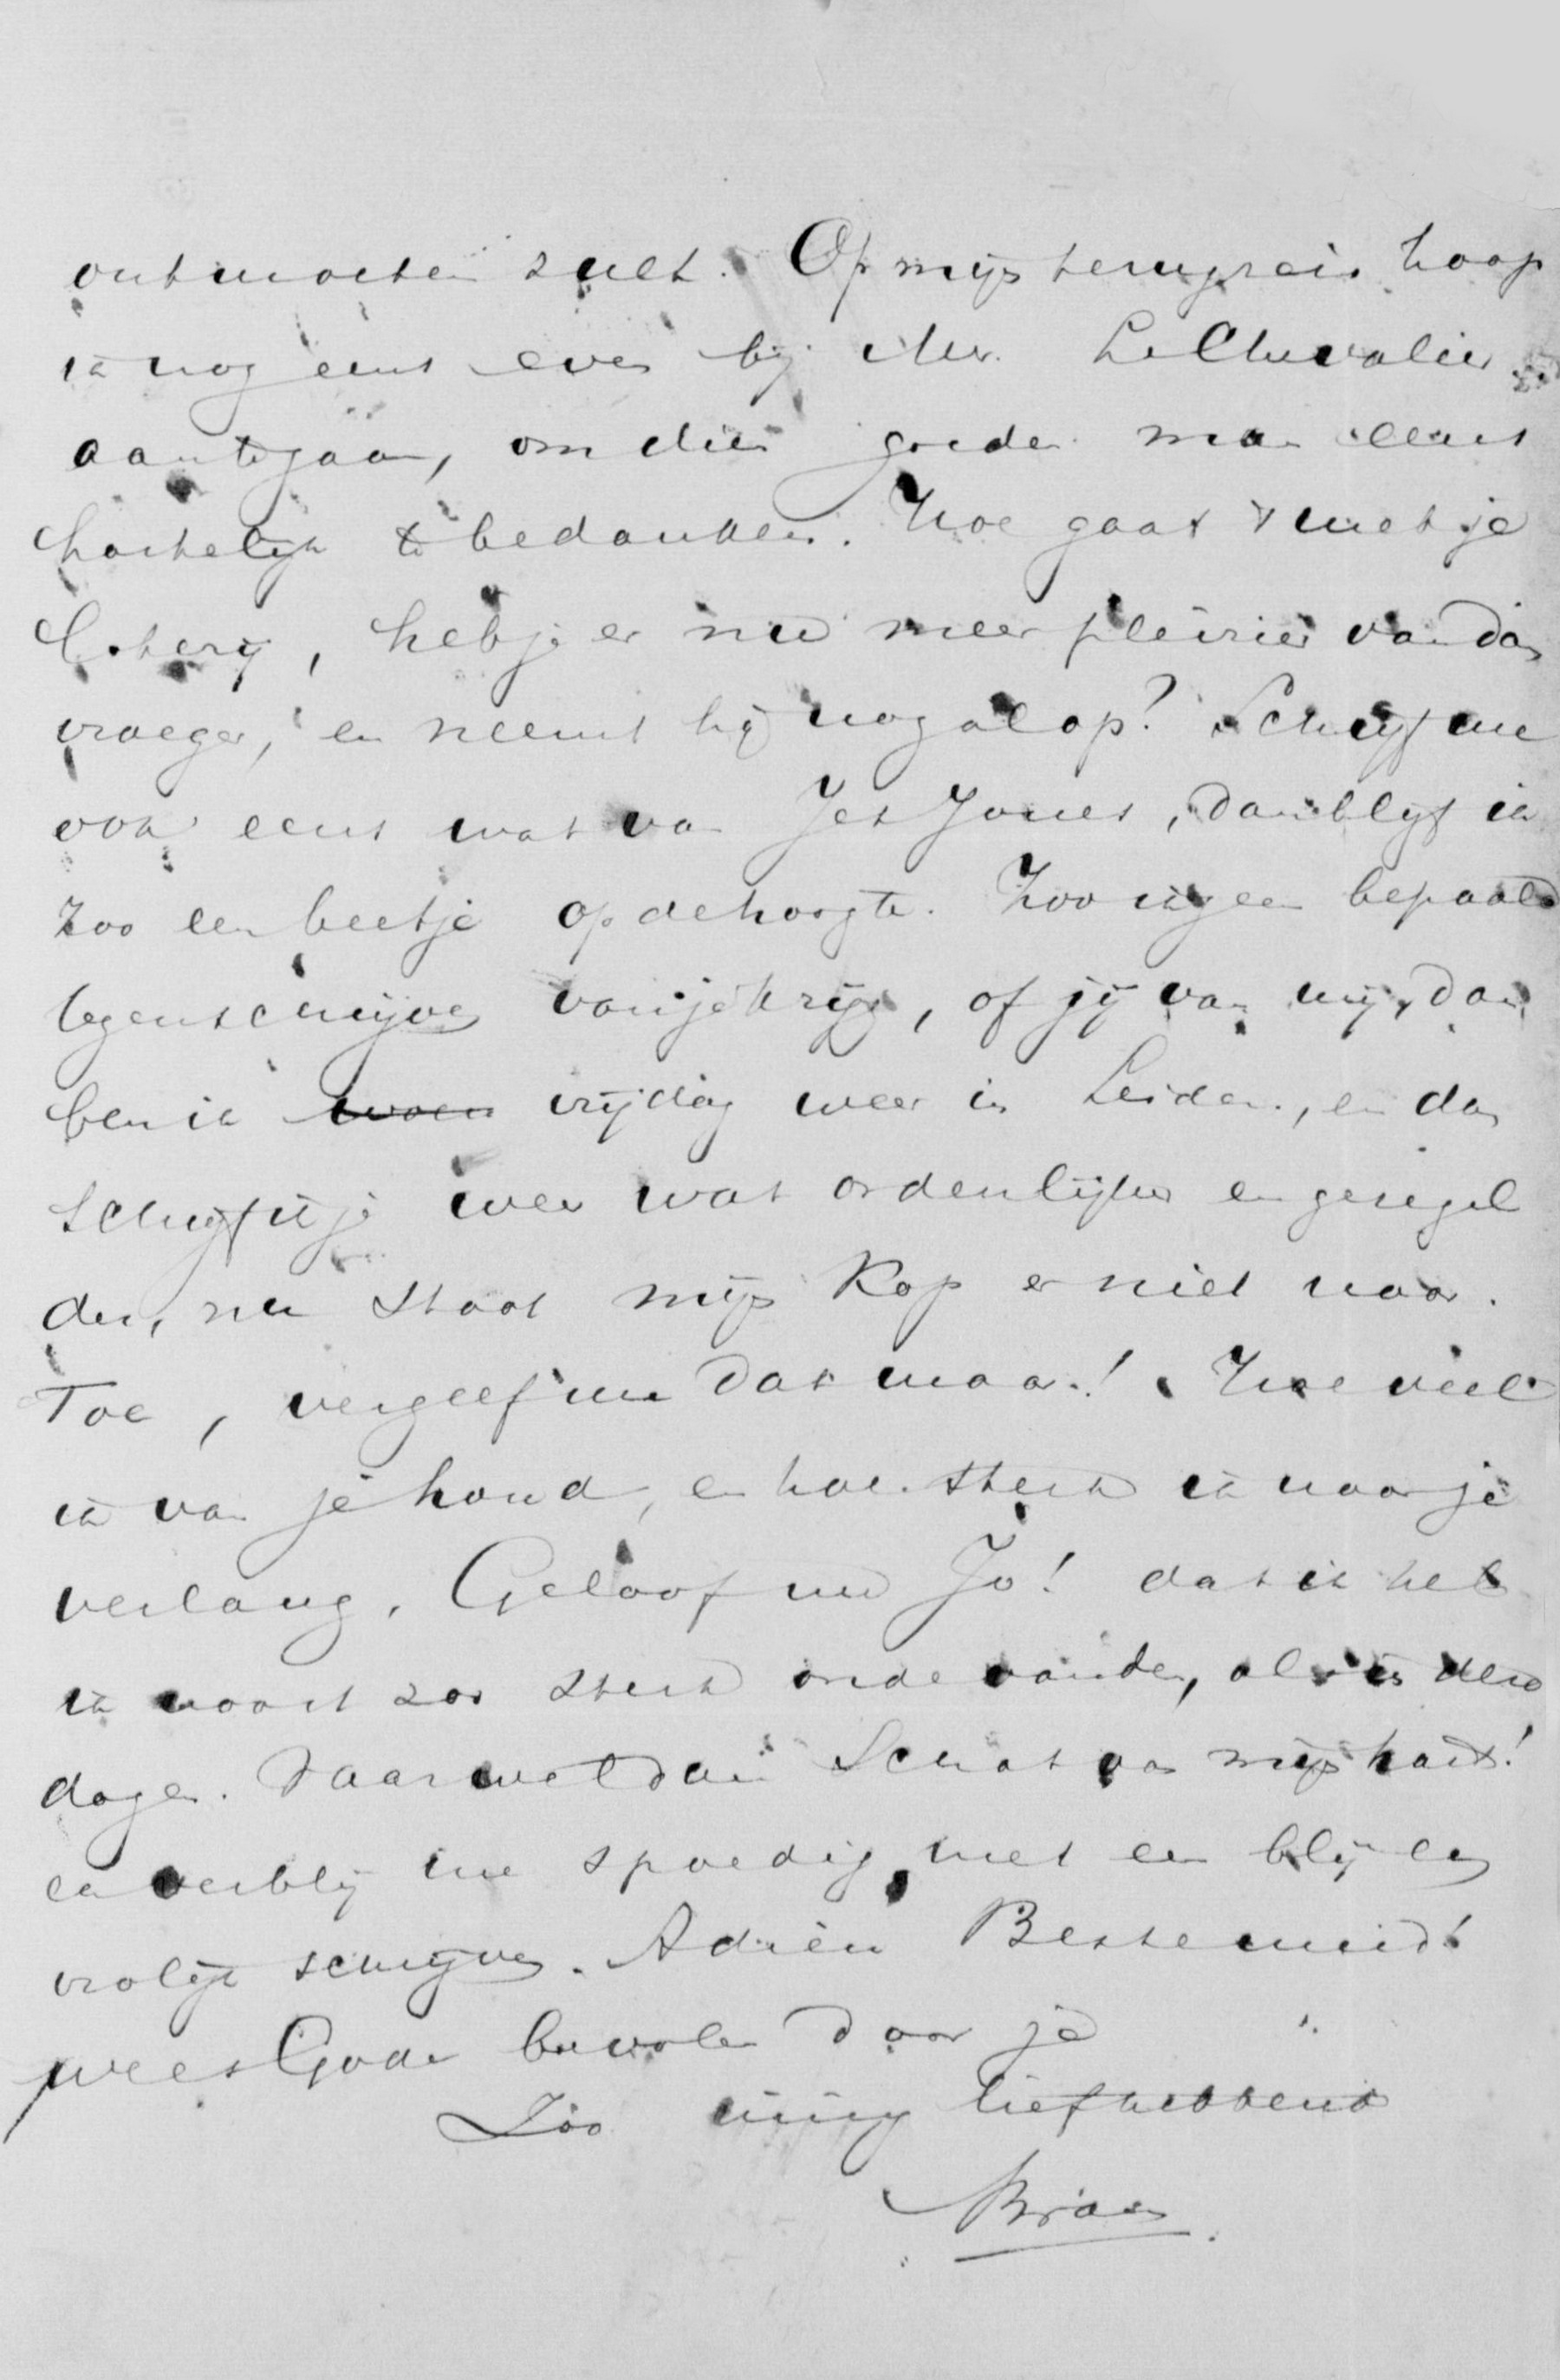 ontmoeten zult. Op mijn terugreis hoop
ik nog eens even bij Mr. Le Chevalier
aantegaan, om dien goeden man eens
hartelijk te bedanken. Hoe gaat 't met je
, heb je er nu meer pleizier van dan
vroeger, en neemt hij nog al op? Schrijf me
ook eens wat van Jet Jones, dan blijf ik
zoo een beetje op de hoogte. Zoo ik geen bepaald
tegenschrijven van je krijg, of jij van mij, dan
ben ik woen vrijdag weer in Leiden, en dan
schrijf ik je weer wat ordenlijker en geregel
der, nu staat mijn Kop er niet naar.
Toe, vergeef me dat maar! Hoe veel
ik van je houd, en hoe sterk ik naar je
verlang. Geloof me Jo! dat ik het
ik nooit zoo sterk ondervonden, als in deze
dagen. Vaarwel dan Schat van mijn hart!
en verblij me spoedig met een blij en
vrolijk schrijven. Adieu Beste meid!
wees Gode bevolen door je
Zoo innig liefhebbend
Bram